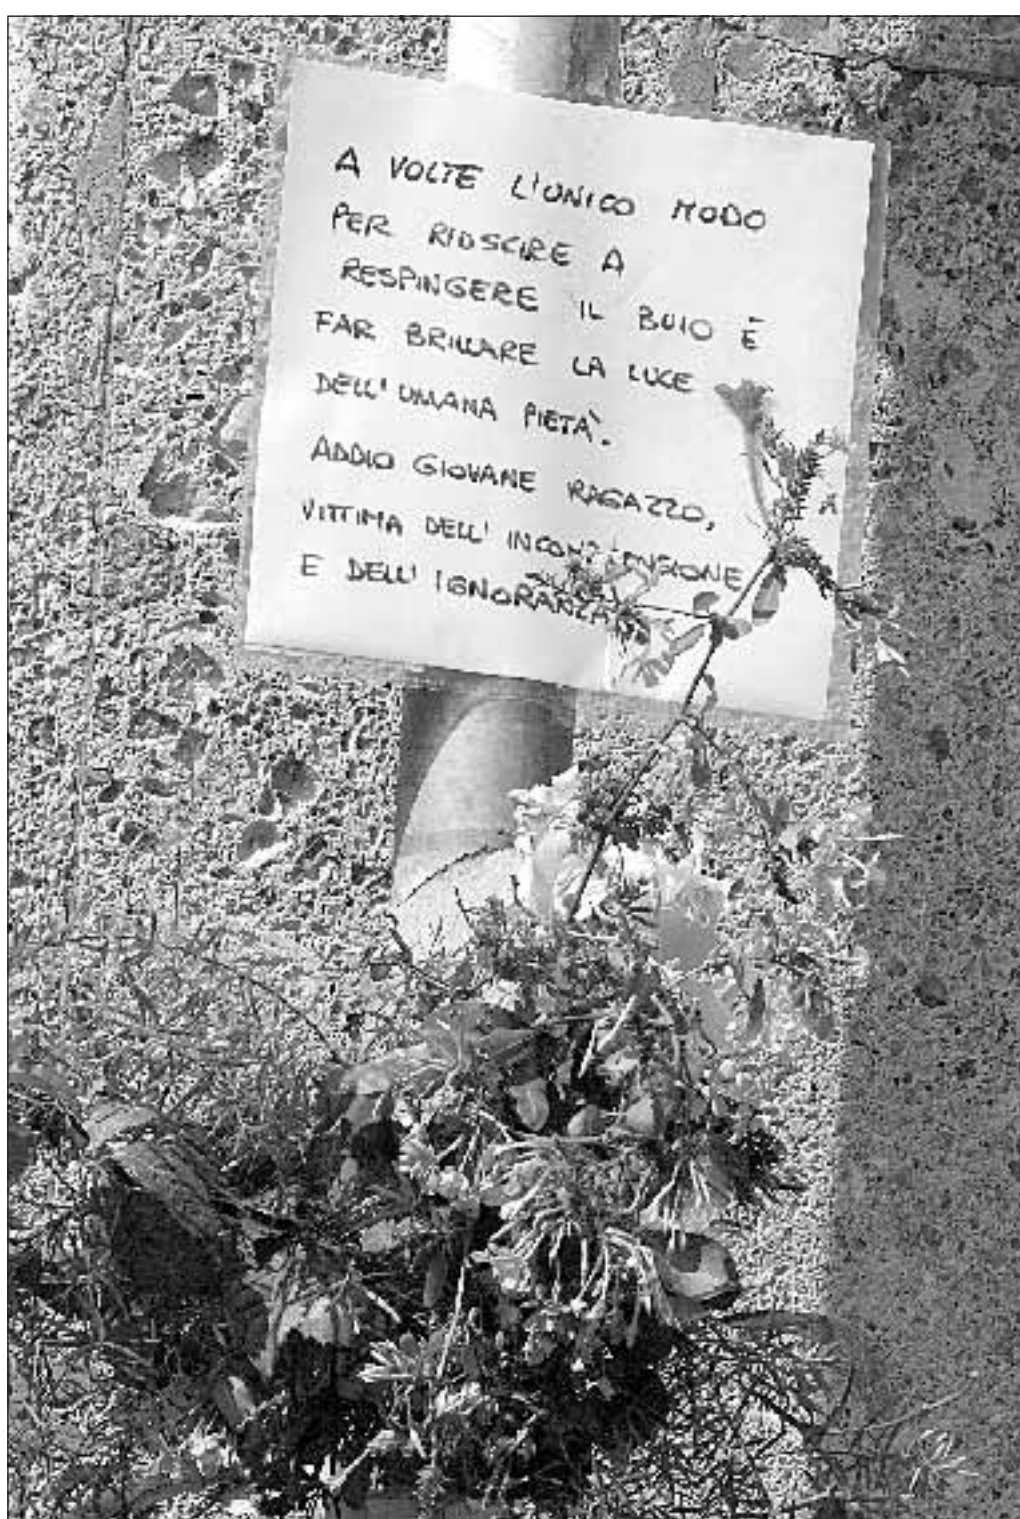 A VOLTE L'UNICO MODO
PER RIUSCIRE A
RESPINGERE IL BUIO È
FAR BRILLARE LA LUCE
DELL'UMANA PIETÀ.
ADDIO GIOVANE RAGAZZO,
VITTIMA DELL'INCOMPRENSIONE
E DELL'IGNORANZA